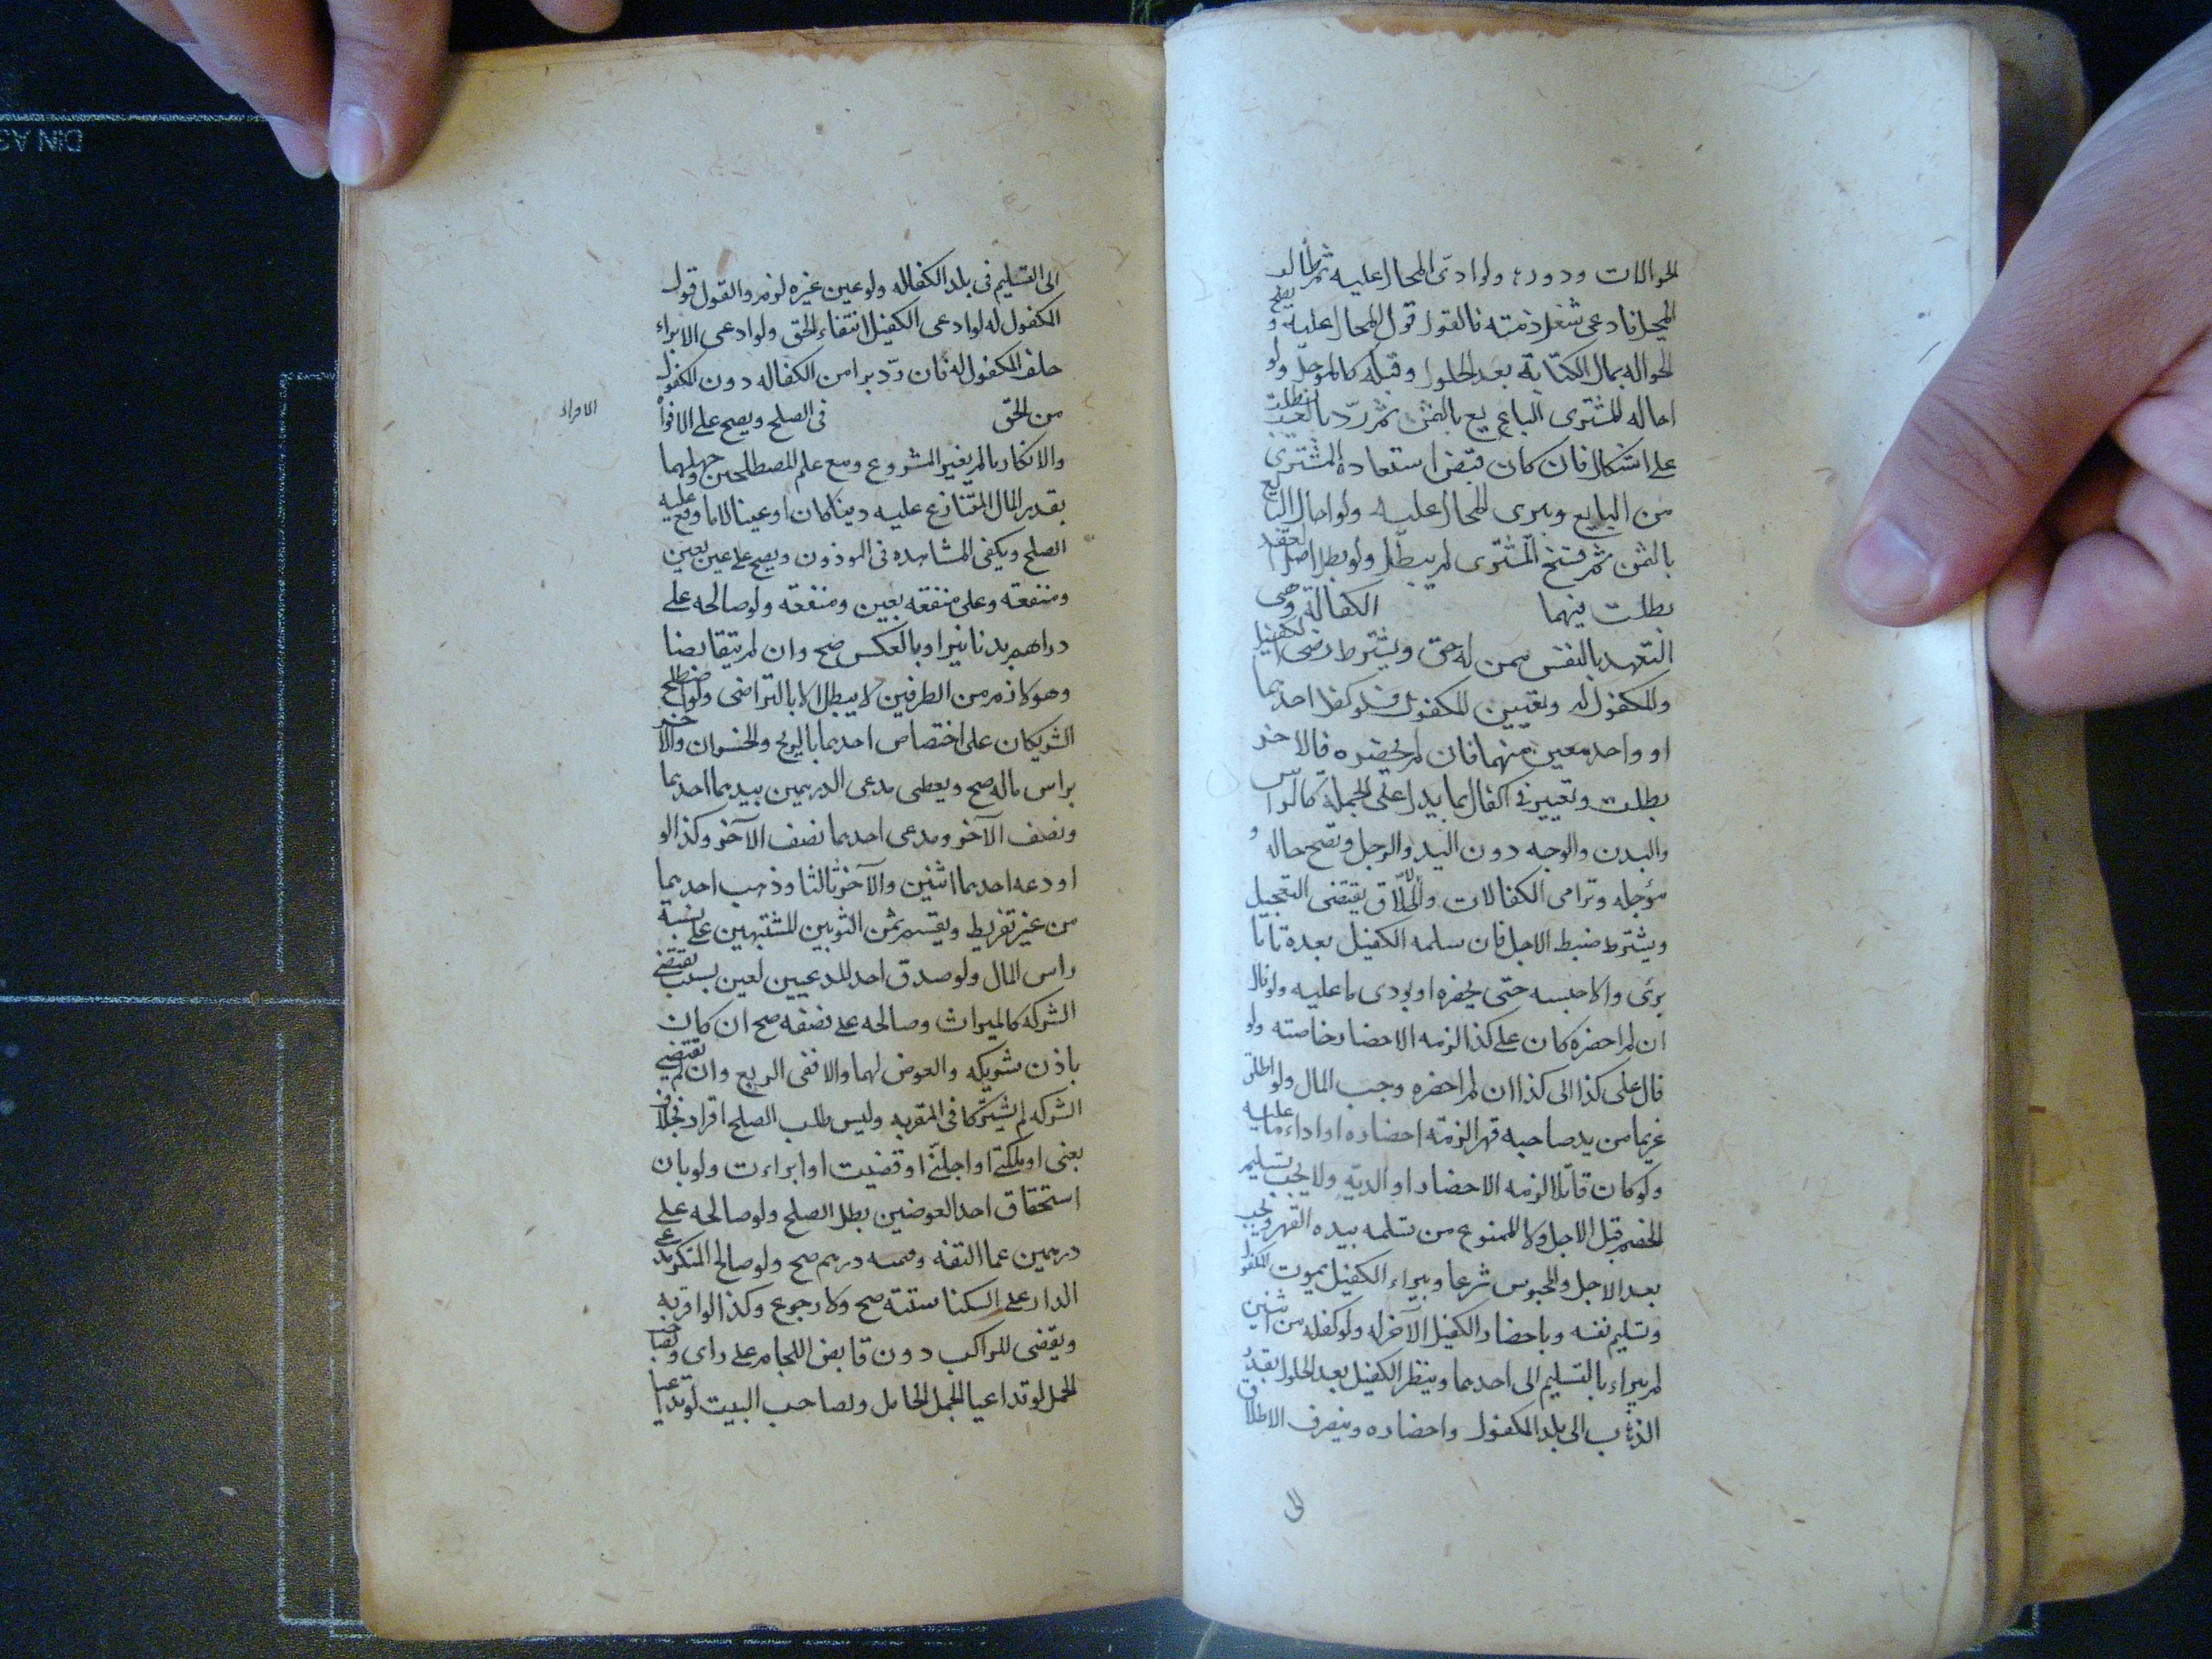 الحوالات ودورها ولو ادى المحال عليه ثم طالب
المحيل فادعى شغل ذمته فالقول قول المحال عليه ويصح
الحواله بمال الكتابة بعد الحلول وقبله كالمؤجل ولو
احاله المشترى البايع بالثمن ثم رد بالعيب بطلت
على اشكال فان كان قبض استعاده المشترى
من البايع ويبرى المحال عليه ولو احال البايع
بالثمن ثم فسخ المشترى لم يبطل ولو بطل اصل العقد
بطلت فيهما الكفالة وهى
التعهد بالنفس ممن له حق ويشترط رضى الكفيل
والمكفول له وتعيين المكفول فلو كفل احدهما
او واحد معين منهما فان لم يحضره فالاخر
بطلت وتعيير فى اكفال بما يدل على الجملة كالراس
والبدن والوجه دون اليد والرجل وتصح حاله و
مؤجله وترامى الكفالات والاطلاق يقتضى التعجيل
ويشترط ضبط الاجل فان سلمه الكفيل بعده تاما
برئ والا حبسه حتى يحضره او يودى ما عليه ولو قال
ان لم احضره كان على كذا الزمه الاحضار خاصته ولو
قال على كذا الى كذا ان لم احضره وجب المال ولو اطلق
غريما من يد صاحبه قهرا لزمته احضاره او اداء ما عليه
ولو كان قاتلا لزمه الاحضار او الدية ولا يجب تسليم
الخصم قبل الاجل ولا الممنوع من تسلمه بيده القهر ويجب
بعد الاجل والمحبوس شرعا ويبراء الكفيل بموت المكفول
وتسليم نفسه وباحضار الكفيل الآخر له ولو كفله من اثنين
لم يبراء بالتسليم الى احدهما وينظر الكفيل بعد الحلول بقدر
الذهاب الى بلد المكفول واحضاره وينصرف الاطلاق
الى
الى التسليم فى بلد الكفاله ولو عين غيره لزم والقول قول
المكفول له لو ادعى الكفيل انتفاء الحق ولو ادعى الابراء
حلف المكفول له فان رد برا من الكفاله دون المكفول
من الحق فى الصلح ويصح على الاقرا
الاقرار
والانكار ما لم يغير المشروع ومع علم المصطلحين وجهلهما
بقدر المال المتنازع عليه دينا كان او عينا لا ما وقع عليه
الصلح ويكفى المشاهده فى الموزون ويصح على عين بعين
ومنفعة وعلى منفعة بعين ومنفعة ولو صالحه على
دراهم بدنانير او بالعكس صح وان لم يتقابضا
وهو لازم من الطرفين لا يبطل الا بالتراضى ولو اصطلح
الشريكان على اختصاص احدهما بالربح والخسران والآخر
براس ماله صح ويعطى مدعى الدرهمين بيدهما احدهما
ونصف الآخر ومدعى احدهما نصف الآخر وكذا لو
اودعه احدهما اثنين والآخر ثالثا وذهب احدهما
من غير تفريط ويقسم ثمن الثوبين المشتبهين على نسبة
راس المال ولو صدق احد المدعيين لعين بسبب يقتضى
الشركه كالميراث وصالحه على نصفه صح ان كان
باذن شريكه والعوض لهما والا ففى الربع وان لم يقتضى
الشركه لم يشتركا فى المقر به وليس طلب الصلح اقرار بخلاف
بعنى او ملكنى او اجلنى او قضيت او ابراءت ولو بان
استحقاق احد العوضين بطل الصلح ولو صالحه على
درهمين عما اتلفه وقيمته درهم صح ولو صالح المنكر مدعى
الدار على السكنا سنة صح ولا رجوع وكذا لو اقر به
ويقضى للراكب دون قابض اللجام على راى ولصاحب
الحمل لو تداعيا الجمل الحامل ولصاحب البيت لو تداعيا